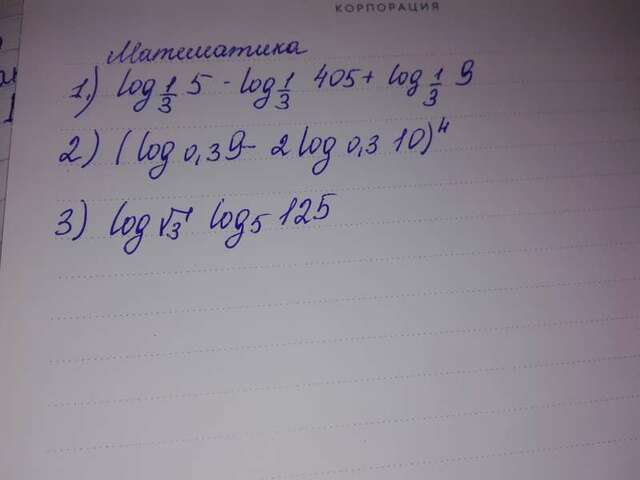 КОРПОРАЦИЯ
Математика
1.) log 1/3 5 - log 1/3 405 + log 1/3 9
2) (log 0,3 9 - 2 log 0,3 10)⁴
3) log √3 log 5 125